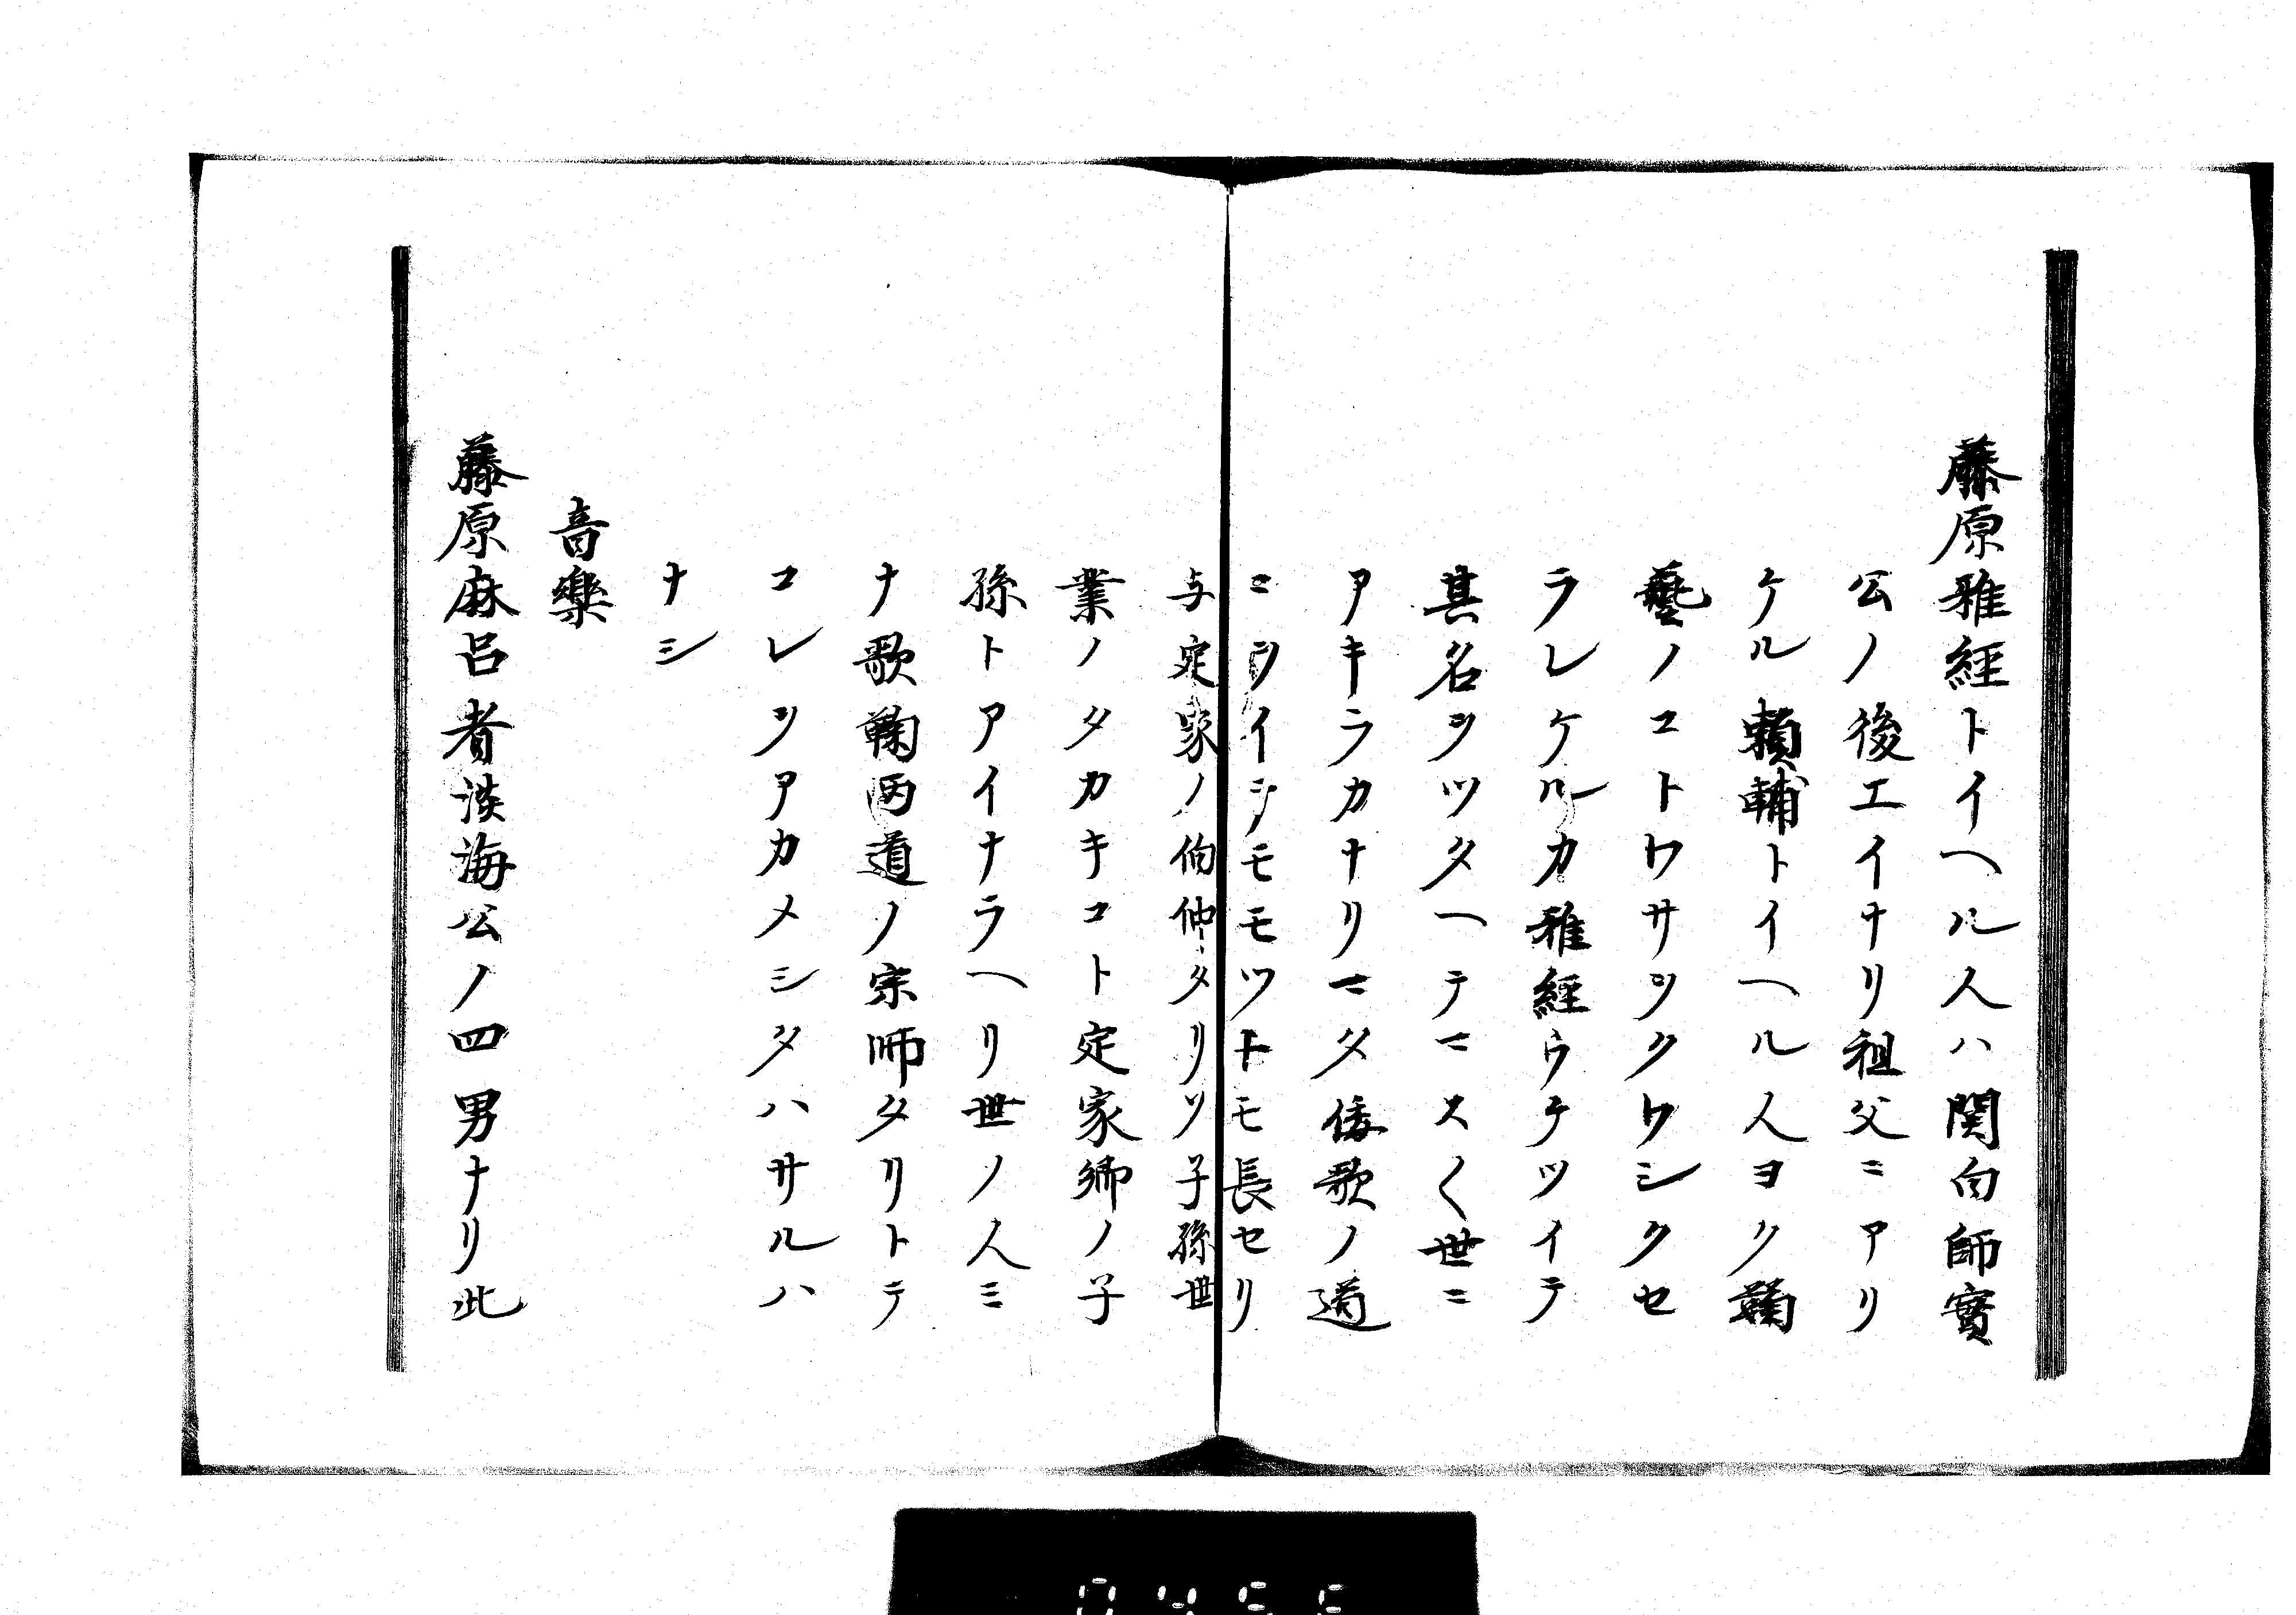 藤原雅経トイヘル人ハ関白師實
公ノ後エイナリ祖父ニアリ
ケル頼輔トイヘル人ヨク鞠
藝ノコトワサヲクワシクセ
ラレケルカ雅経ウケツイテ
其名ヲツタヘテマスく世ニ
アキラカナリマタ倭歌ノ道
ニヲイテモモツトモ長セリ
与定家ノ伯仲タリソ子孫世
業ノタカキコト定家卿ノ子
孫トアイナラヘリ世ノ人ミ
ナ歌鞠両道ノ宗師タリトテ
コレヲアカメシタハサルハ
ナシ
音樂
藤原麻呂者淡海公ノ四男ナリ此